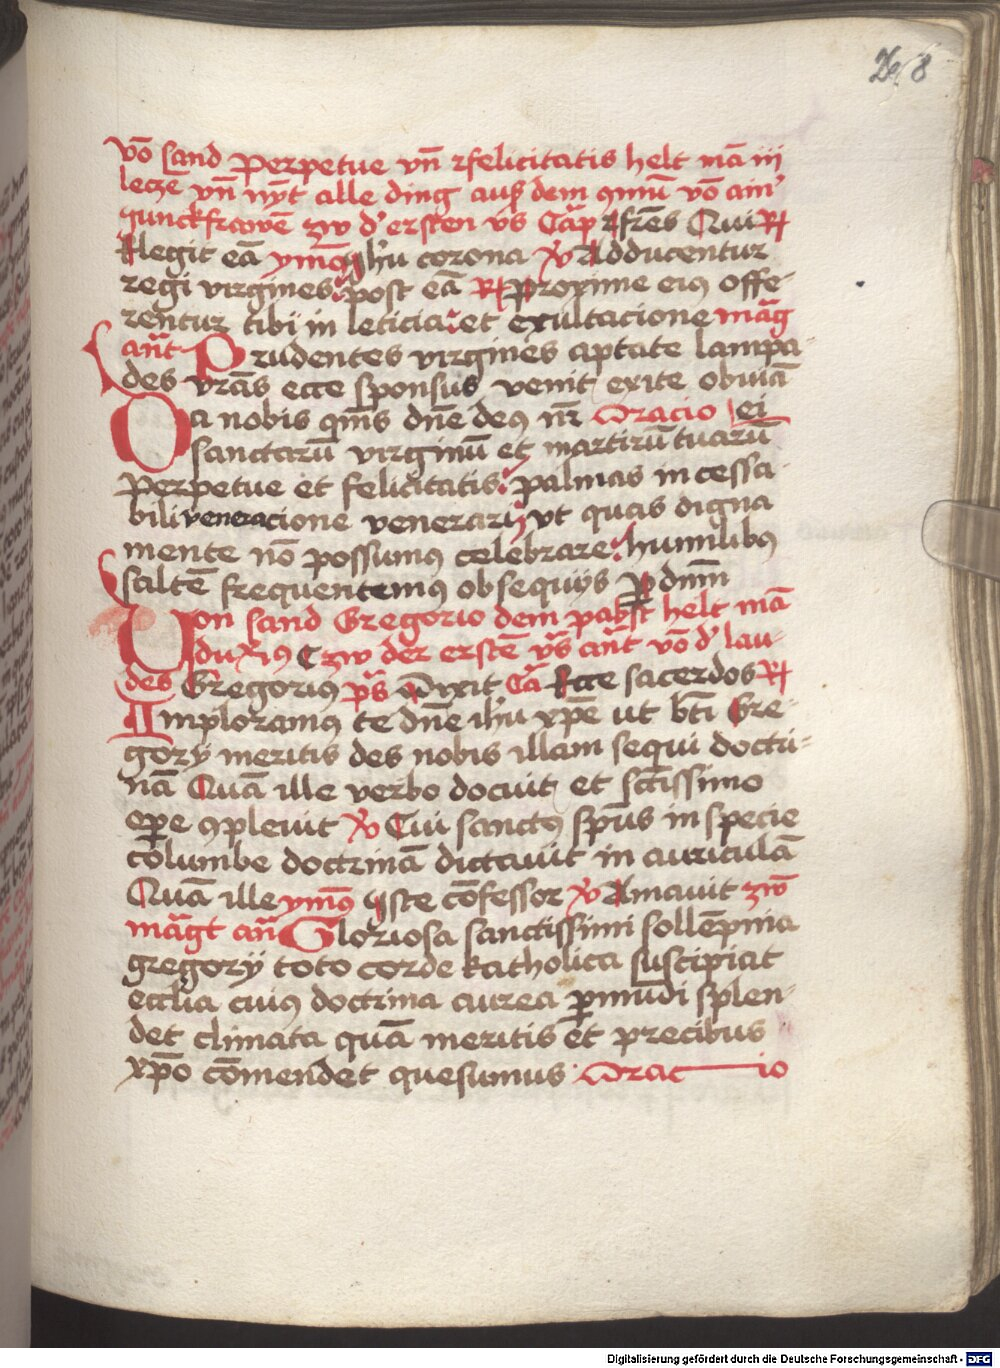 268
võ sand Perpetue vñ ꝛfelicitatis helt mã iii
lecze vñ nÿt alle ding auß dem ꝯmũ võ ain
yunckfrawẽ zw d' ersten vs Cap ꝛfrẽs Qui ℟
Elegit eã ymꝯ ihu corona ℣ Adducentur
regi virgines post eã ℟ Proxime eiꝯ offe-
rentur tibi in leticia et exultacione mãg
añt Prudentes virgines aptate lampa-
des vrãs ecce sponsus venit exite obuiã
Da nobis qm̃s dñe deꝯ nr̃ Oracio ei
sanctarũ virginũ et martirũ tuarũ
Perpetue et felicitatis palmas in cessa-
bili veneracione venerari vt quas digna
mente nõ possumꝯ celebrare humilibꝯ
saltẽ frequentemus obsequÿs ꝑ dnm̃
Von sand Gregorio dem pabst helt mã
du xiꝯ C zw der erstẽ vs añt võ d' lau-
des Gregoriꝯ ps Dixit Ca Ecce sacerdos ℟
Imploramꝯ te dñe ihu xp̃e ut bt̃i Gre-
gorÿ meritis des nobis illam sequi doctri-
nã Quã ille verbo docuit et sct̃issimo
oꝑe ꝯpleuit ℣ Cui sanctꝯ sp̃us in specie
columbe doctrinã dictauit in auriculã
Quã ille ymꝯ iste cõfessor ℣ Amauit zw̃
mãgt añ Gloriosa sanctissimi sollẽpnia
gregorÿ toto corde katholica suscipiat
ecclia cuiꝯ doctrina aurea ꝑ mũdi splen-
det climata quã meritis et precibus
xp̃o cõmendet quesumus Oracio
Digitalisierung gefördert durch die Deutsche Forschungsgemeinschaft - DFG